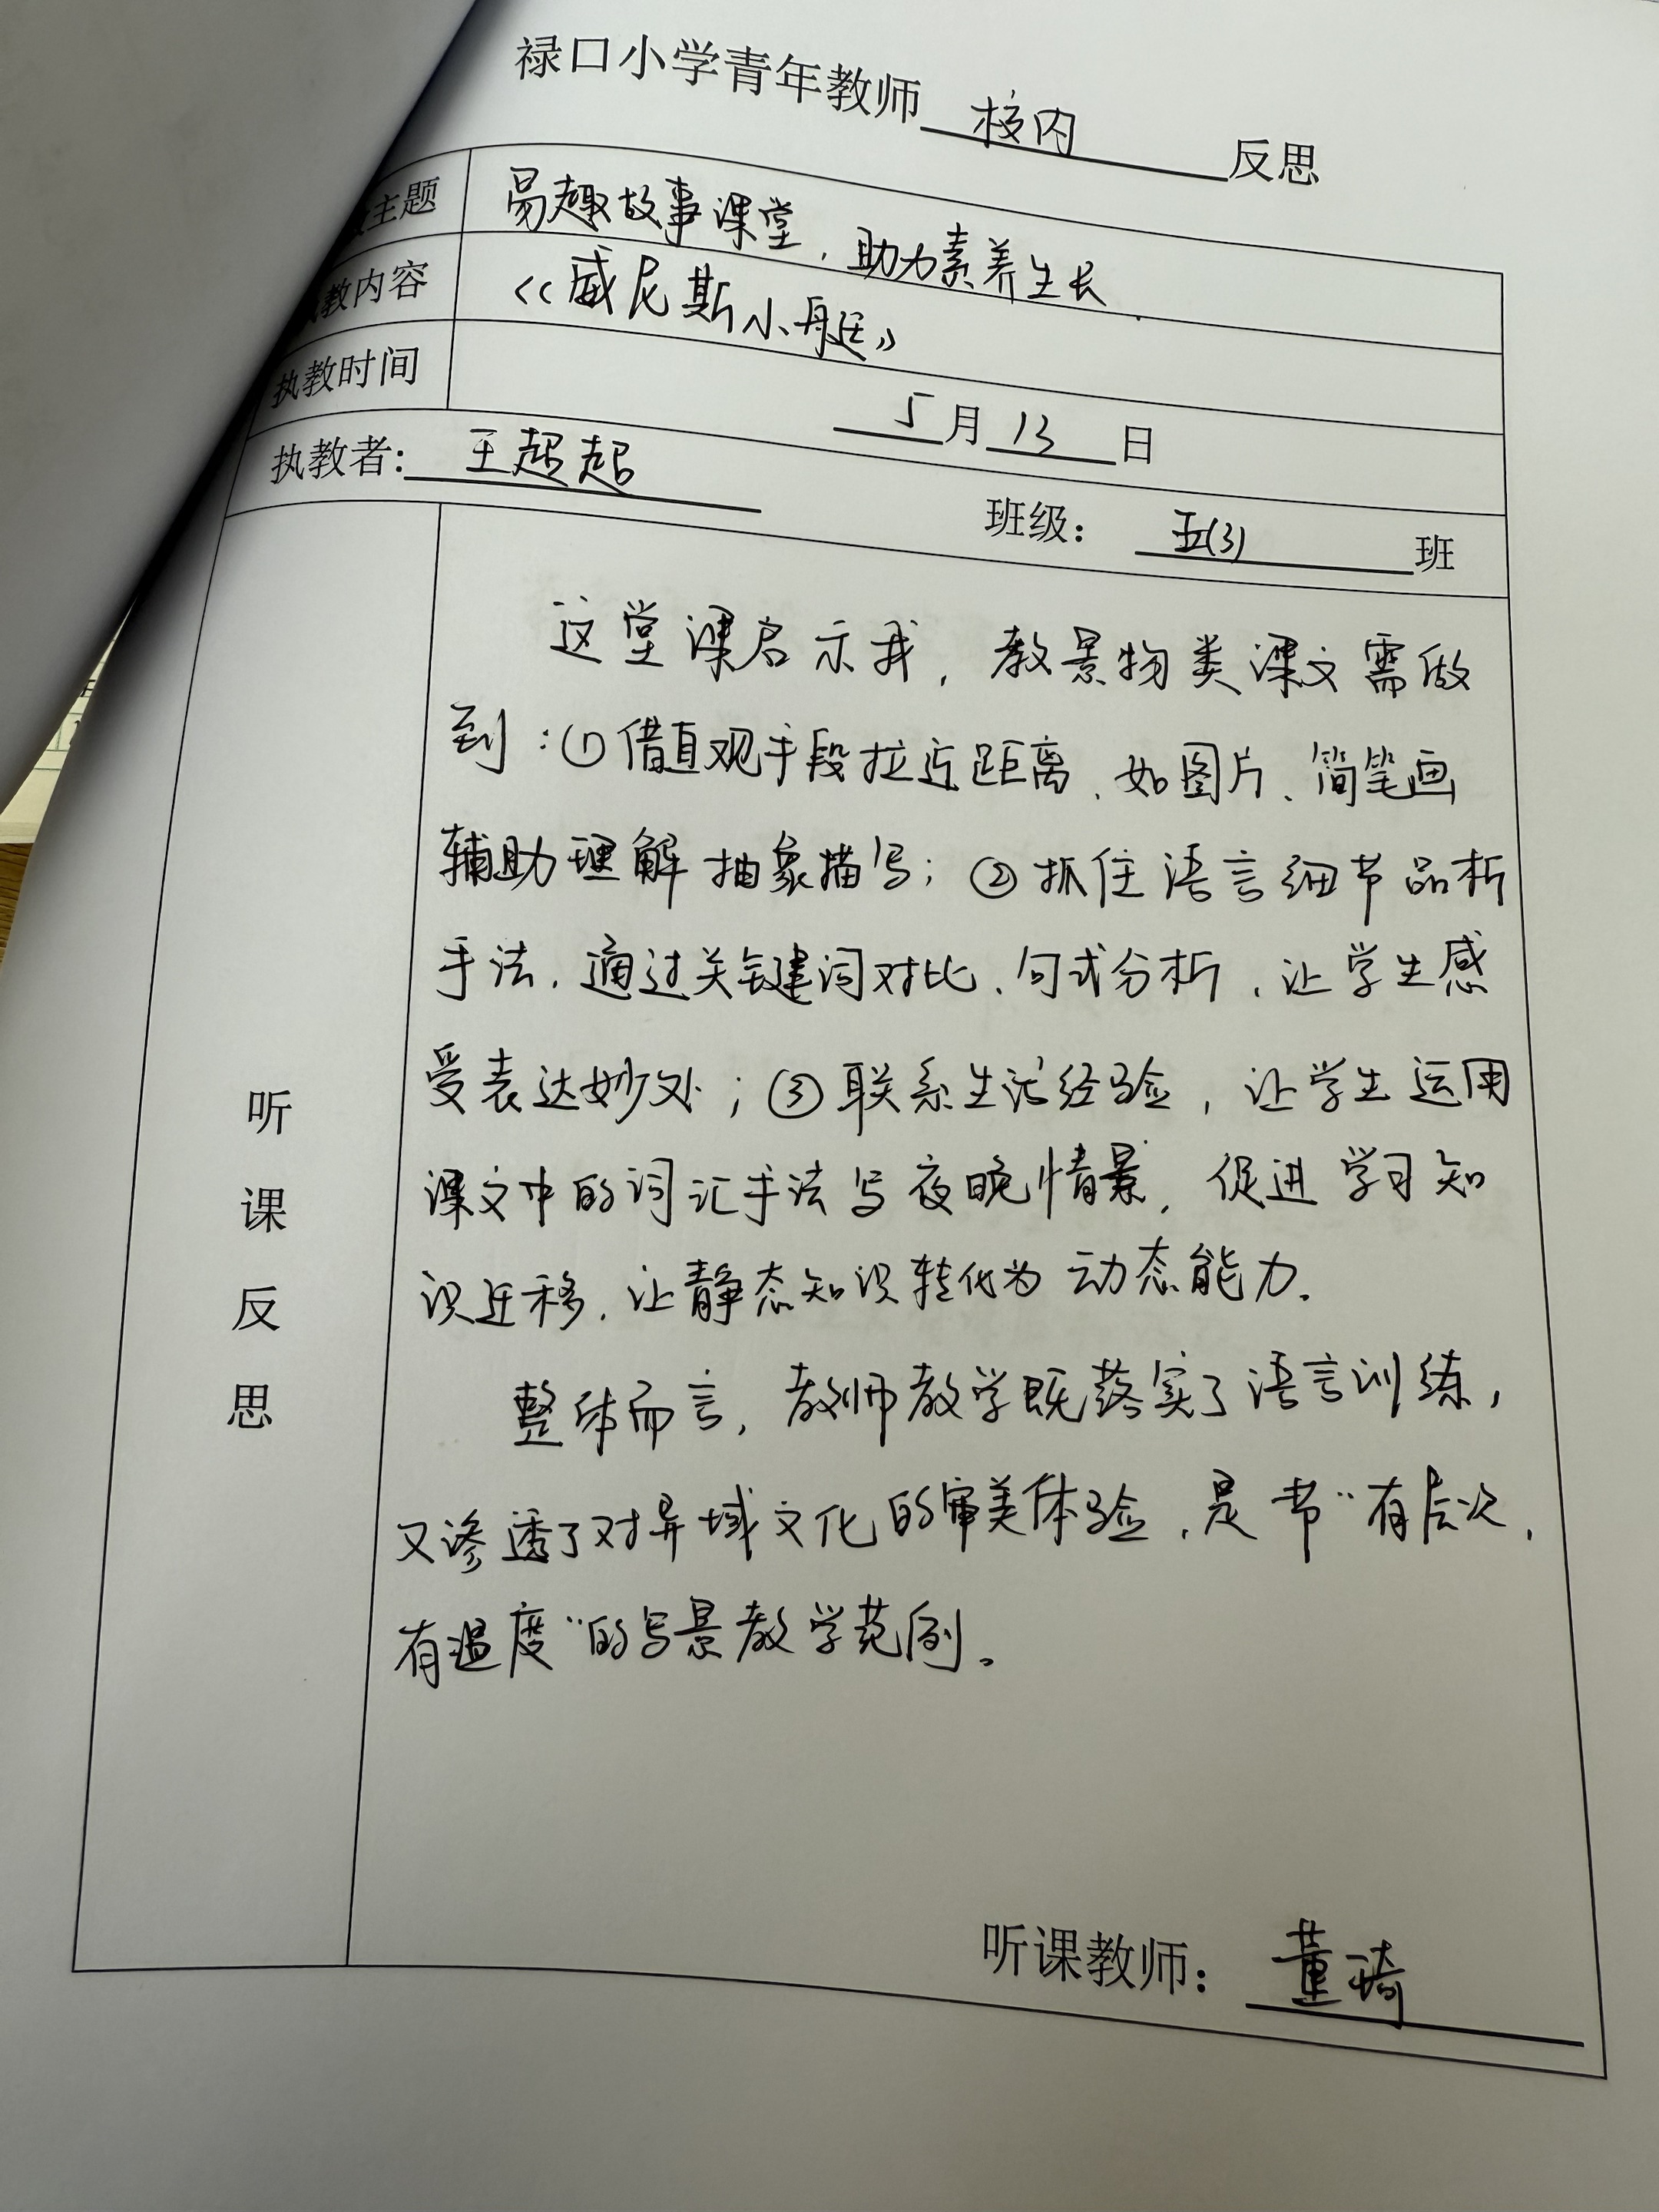 禄口小学青年教师 校内 反思
主题 易趣故事课堂，助力素养生长
教内容 《威尼斯小艇》
执教时间 5月13日
执教者：王超超 班级：五(3)班
听课反思
这堂课启示我，教景物类课文需做
到：①借直观手段拉近距离、如图片、简笔画
辅助理解抽象描写；②抓住语言细节品析
手法，通过关键词对比、句式分析，让学生感
受表达妙处；③联系生活经验，让学生运用
课文中的词汇手法写夜晚情景，促进学习知
识迁移，让静态知识转化为动态能力。
整体而言，教师教学既落实了语言训练，
又渗透了对异域文化的审美体验，是节“有层次，
有温度”的写景教学范例。
听课教师：董琦